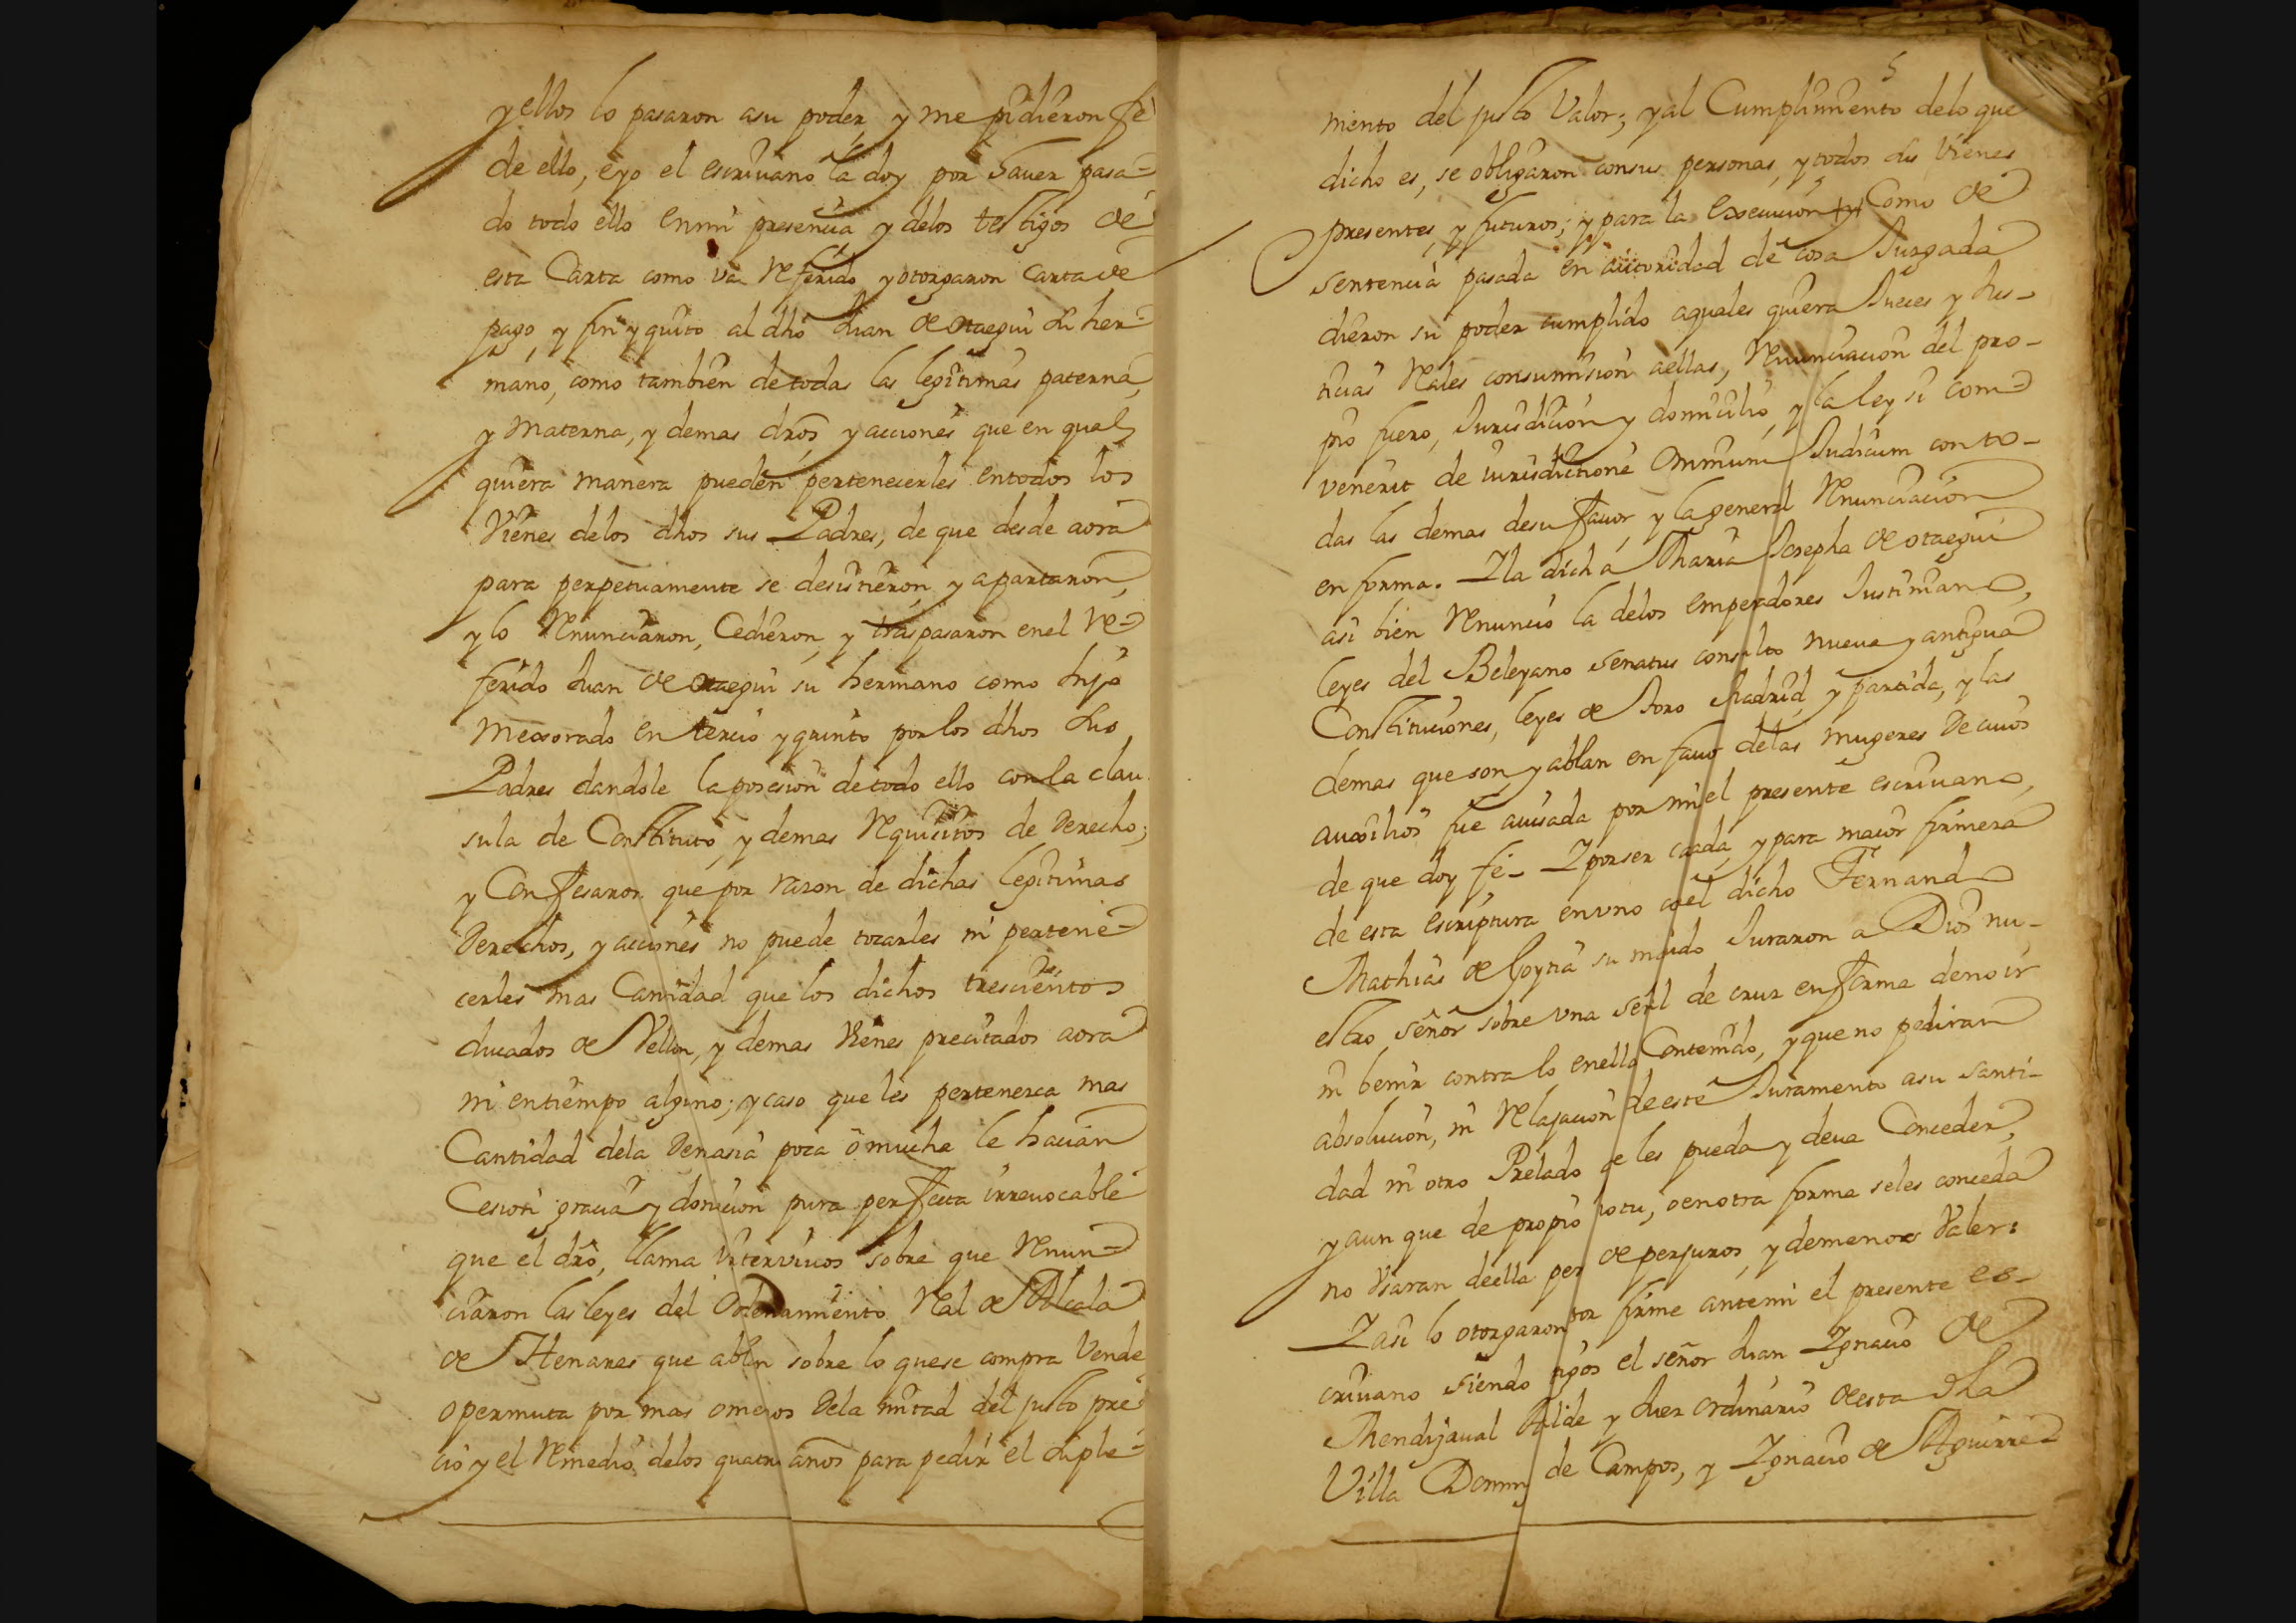 y ellos lo pasaron asu poder, y me pidieron fe
de ello, eyo el escriuano la doy por hauer pasa-
do todo ello enmi presencia y delos testigos de
esta Carta como va Referido y otorgaron Carta de
pago, y fin y quito al dho Juan de Otaegui su her-
mano, como tambien de todas las legitimas paterna,
y Materna, y demas dros, y acciones que en qual
quiera manera pueden pertenecerles entodos los
Vienes delos dhos sus Padres, de que desde aora
para perpetuamente se desistieron, y apartaron,
y lo Renunciaron, Cedieron, y traspasaron enel Re-
ferido Juan de Otaegui su hermano como hijo
Mexorado en tercio y quinto por los dhos sus
Padres dandole la posesion de todo ello con la clau
sula de Constituto, y demas Requisitos de Derecho;
y Confesaron que por razon de dichas legitimas
Derechos, y acciones no puede tocarles ni pertene-
cerles mas Cantidad que los dichos trescientos
ducados de Vellon, y demas Vienes precitados aora
ni entiempo alguno; y caso que les pertenezca mas
Cantidad dela Demasia poca o mucha le hacian
Cesion gracia y donacion pura perfecta irreuocable
que el dro, llama intervivos sobre que Renun-
ciaron las leyes del Ordenamiento Real de Alcala
de Henares que ablan sobre lo quese compra Vende
o permuta por mas omenos Dela mitad del justo pre-
cio y el Remedio delos quatro años para pedir el suple-
5
miento del justo Valor; y al Cumplimiento delo que
dicho es, se obligaron consus personas, y todos sus Vienes
presentes, y futuros; y para la execucion Como de
sentencia pasada en autoridad de cosa Juzgada
dieron su poder cumplido aquales quiera Jueces y Jus-
ticias Reales consumision aellas, Renunciacion del pro-
pio fuero, Jurisdicion y domicilio, y la ley si com-
venerit de iurisdictione Omnium Judicum con to-
das las demas desu fauor, y la general Renunciacion
en forma. Y la dicha Maria Josepha de otaegui
asi bien Renuncio la delos emperadores Justiniano,
leyes del Beleyano Senatus consulto nueua y antigua
Constituciones, leyes de toro Madrid y partida, y las
demas que son, y ablan en fauor delas mugeres De cuios
auxilios fue auisada por mi el presente escriuano,
de que doy fe- Y por ser casada, y para maior firmeza
de esta escriptura enuno con el dicho Fernando
Mathias de Goytia su marido Juraron a Dios nu-
estro señor sobre vna señal de cruz enforma denoir
ni benir contra lo enella Contenido, y que no pediran
absolucion, ni Relajacion de este Juramento asu Santi-
dad ni otro Prelado que les pueda y deua Conceder,
y aun que de propio motu, o enotra forma seles conceda
no Vsaran deella pena de perjuros, y demenos Valer:
Y asi lo otorgaron por firme antemi el presente es-
criuano siendo tgos el señor Juan Ygnacio de
Mendizaual Alcalde y Juez ordinario de esta dha
Villa Domingo de Campos, y Ygnacio de Aguirre-